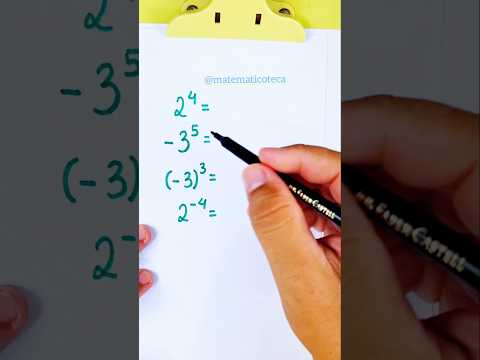 @matematicoteca
2⁴=
-3⁵=
(-3)³=
2⁻⁴=
FABER-CASTELL